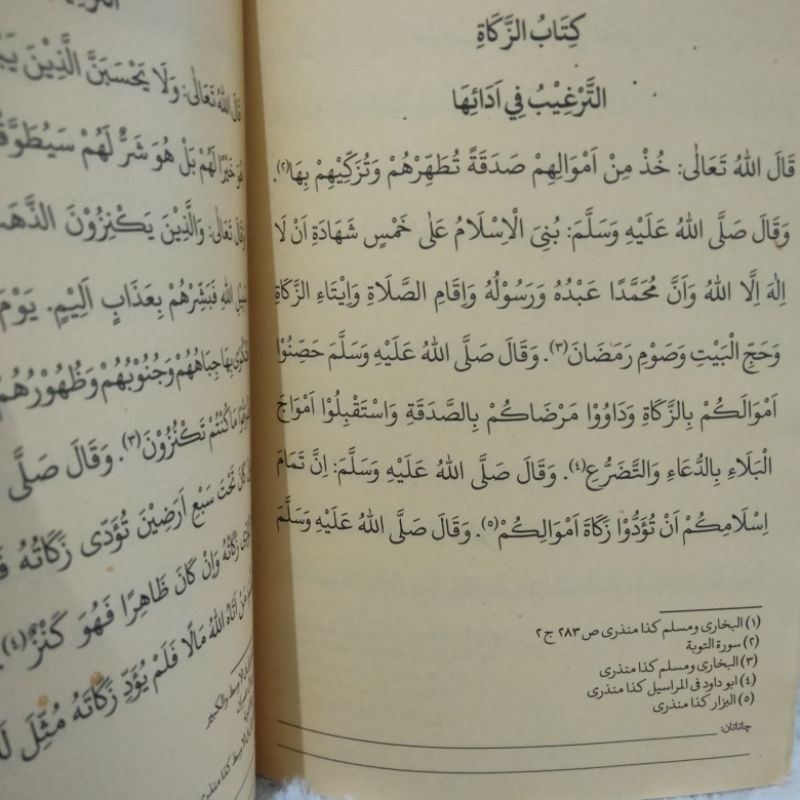 كِتَابُ الزَّكَاةِ
التَّرْغِيْبُ فِي اَدَائِهَا
قَالَ اللهُ تَعَالٰى: خُذْ مِنْ اَمْوَالِهِمْ صَدَقَةً تُطَهِّرُهُمْ وَتُزَكِّيْهِمْ بِهَا(٢).
وَقَالَ صَلَّى اللهُ عَلَيْهِ وَسَلَّمَ: بُنِيَ الْاِسْلَامُ عَلٰى خَمْسٍ شَهَادَةِ اَنْ لَا
اِلٰهَ اِلَّا اللهُ وَاَنَّ مُحَمَّدًا عَبْدُهُ وَرَسُوْلُهُ وَاِقَامِ الصَّلَاةِ وَاِيْتَاءِ الزَّكَاةِ
وَحَجِّ الْبَيْتِ وَصَوْمِ رَمَضَانَ(٣). وَقَالَ صَلَّى اللهُ عَلَيْهِ وَسَلَّمَ حَصِّنُوْا
اَمْوَالَكُمْ بِالزَّكَاةِ وَدَاوُوْا مَرْضَاكُمْ بِالصَّدَقَةِ وَاسْتَقْبِلُوْا اَمْوَاجَ
الْبَلَاءِ بِالدُّعَاءِ وَالتَّضَرُّعِ(٤). وَقَالَ صَلَّى اللهُ عَلَيْهِ وَسَلَّمَ: اِنَّ تَمَامَ
اِسْلَامِكُمْ اَنْ تُؤَدُّوْا زَكَاةَ اَمْوَالِكُمْ(٥). وَقَالَ صَلَّى اللهُ عَلَيْهِ وَسَلَّمَ
(١) البخارى ومسلم كذا منذرى ص ٢٨٣ ج ٢
(٢) سورة التوبة
(٣) البخارى ومسلم كذا منذرى
(٤) ابو داود فى المراسيل كذا منذرى
(٥) البزار كذا منذرى
چاتاتان:
قَالَ اللهُ تَعَالٰى: وَلَا يَحْسَبَنَّ الَّذِيْنَ
هُوَ خَيْرًا لَهُمْ بَلْ هُوَ شَرٌّ لَهُمْ
وَقَالَ تَعَالٰى: وَالَّذِيْنَ يَكْنِزُوْنَ
اللهِ فَبَشِّرْهُمْ بِعَذَابٍ اَلِيْمٍ. يَوْمَ
بِهَا جِبَاهُهُمْ وَجُنُوْبُهُمْ وَظُهُوْرُهُمْ
مَا كُنْتُمْ تَكْنِزُوْنَ(٣). وَقَالَ صَلَّى
تَحْتَ سَبْعِ اَرَضِيْنَ تُؤَدّٰى زَكَاتُهُ
زَكَاتُهُ وَاِنْ كَانَ ظَاهِرًا فَهُوَ كَنْزٌ(٤).
مَنْ اٰتَاهُ اللهُ مَالًا فَلَمْ يُؤَدِّ زَكَاتَهُ مُثِّلَ